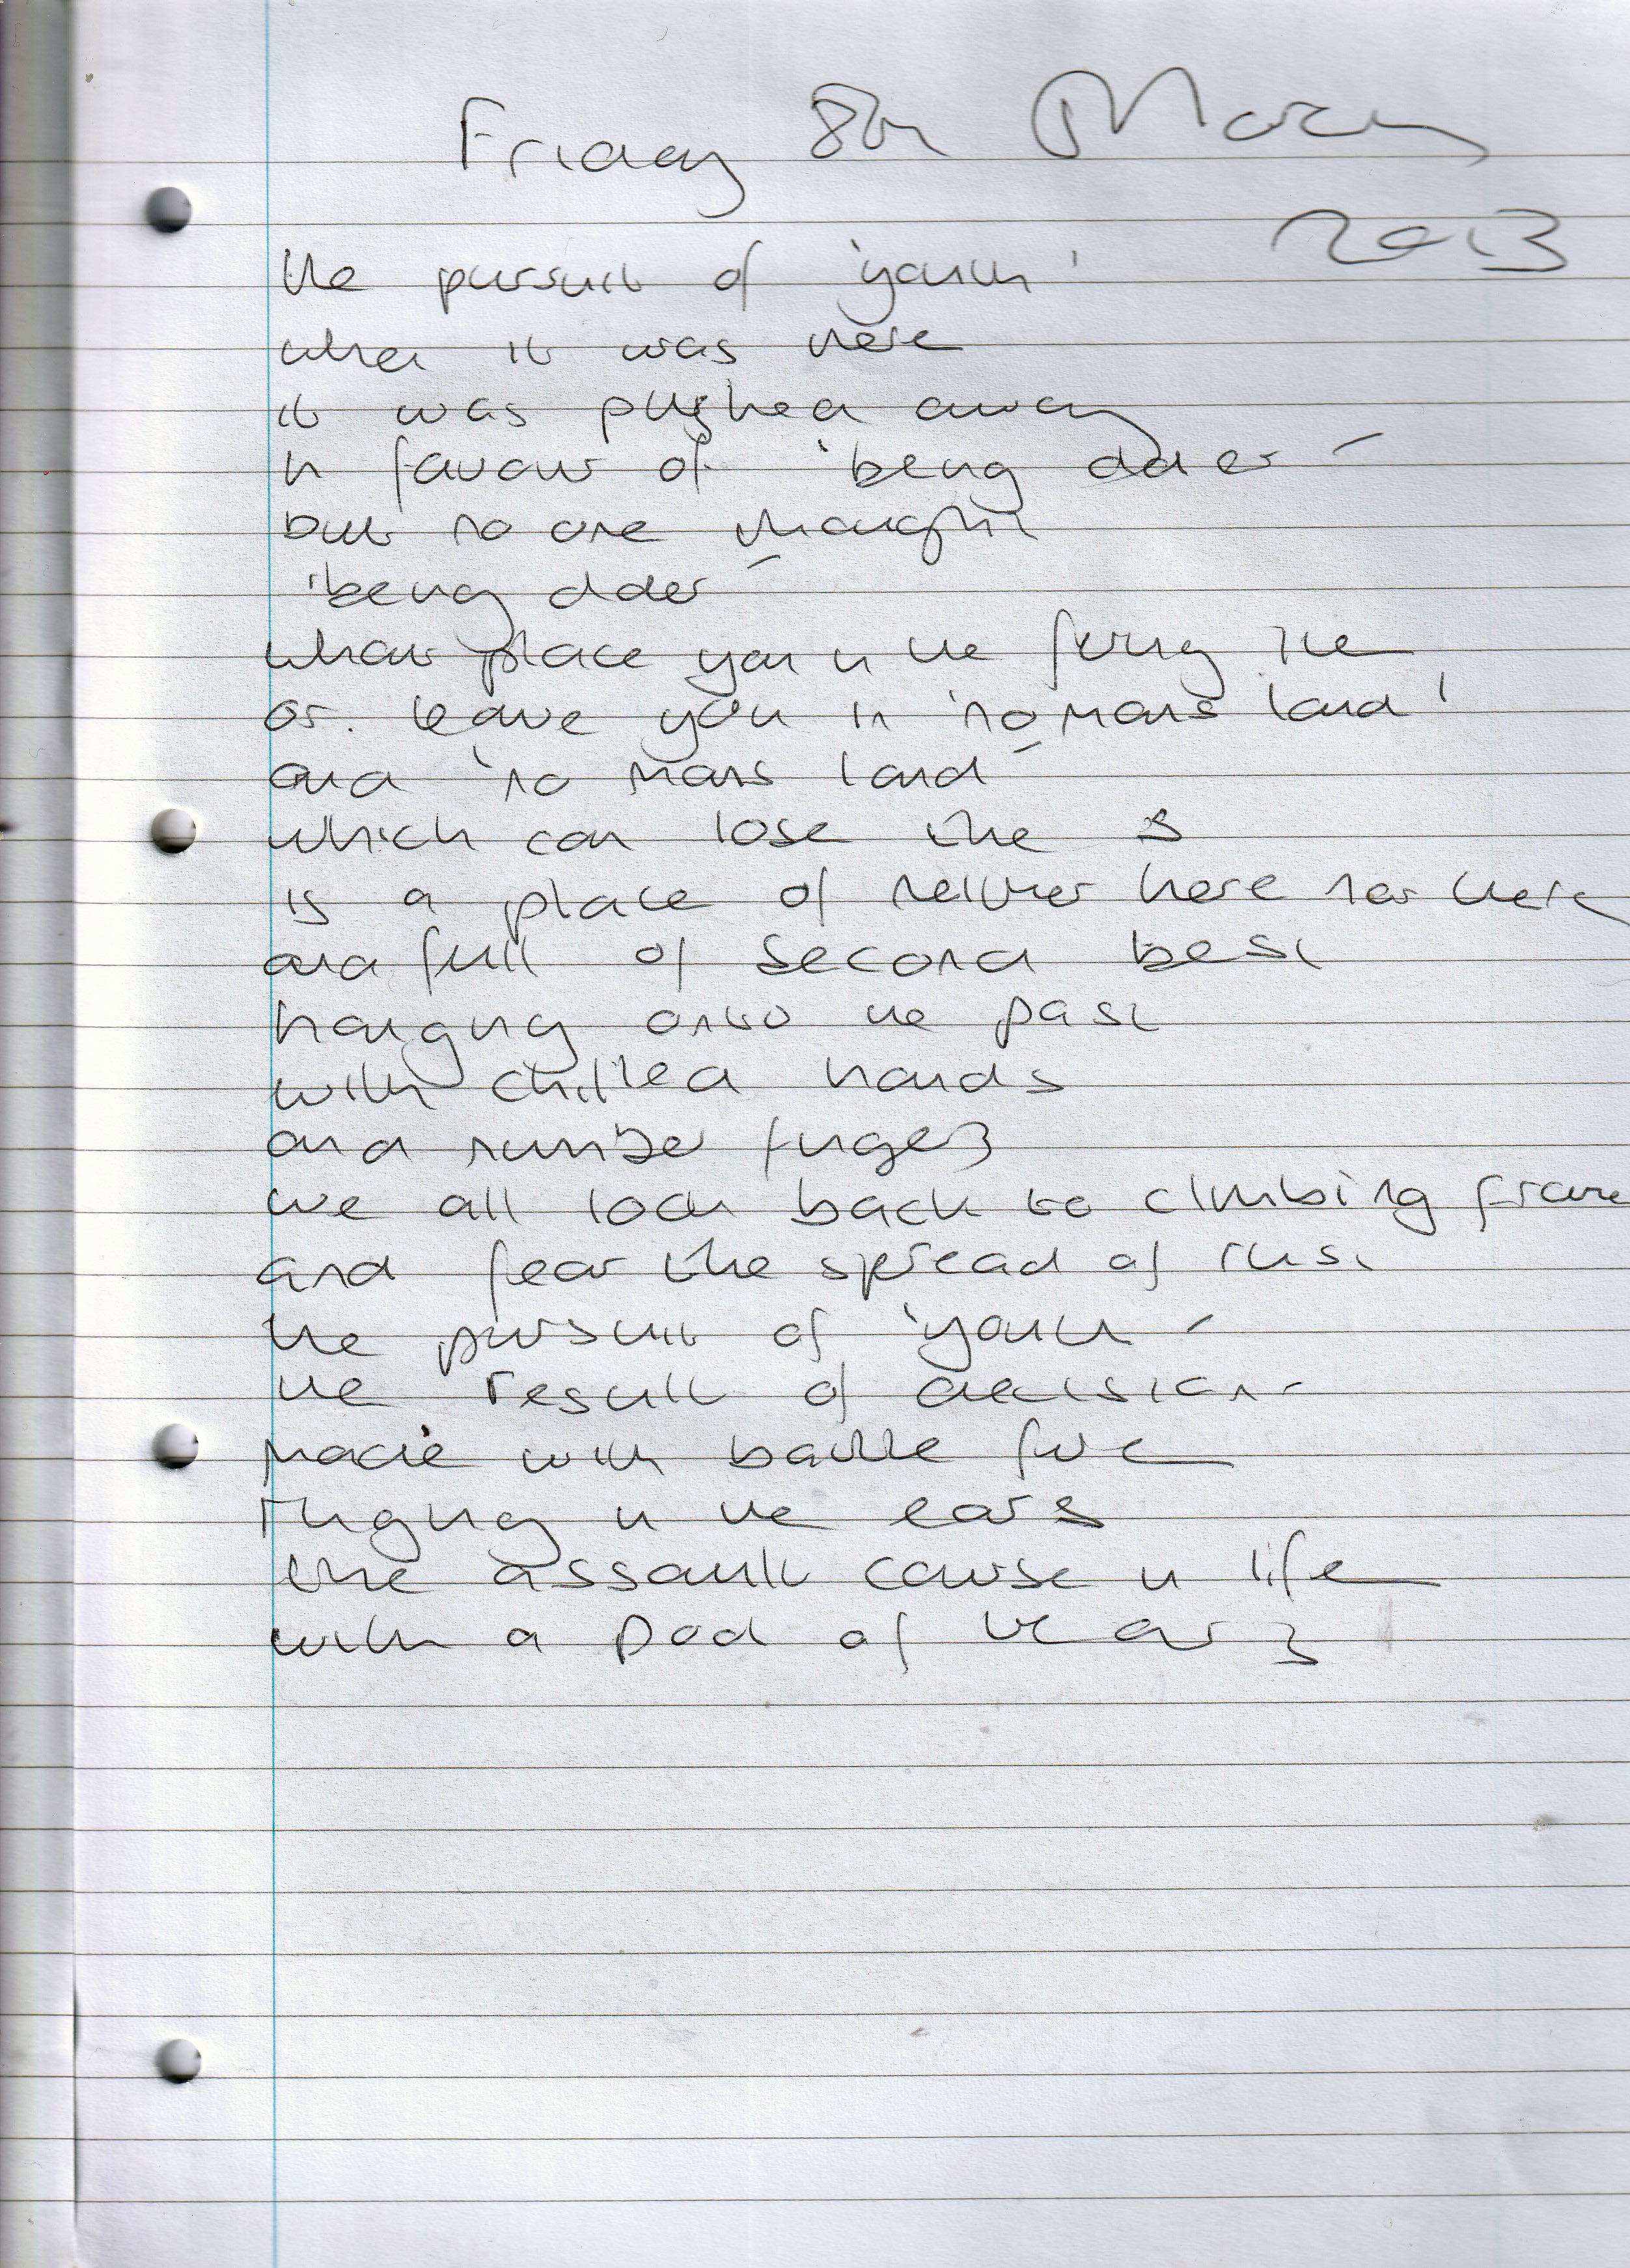 Friday 8th March
2013
the pursuit of 'youth'
when it was here
it was pushed away
in favour of 'being older'
but no one thought
'being older'
would place you in the firing line
or leave you in 'no mans land'
and 'no mans land'
which can lose the s
is a place of neither here nor there
and full of second best
hanging onto the past
with chilled hands
and number fingers
we all look back to climbing frame
and fear the spread of rust
the pursuit of 'youth'
the result of decision
made with battle fire
ringing in the ears
the assault course in life
with a pod of